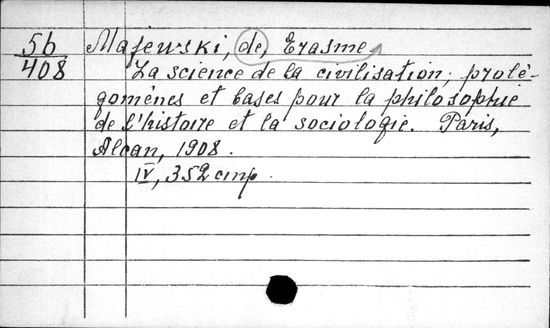 5б Majewski, de, Erasme.
408 La science de la civilisation; prolé-
gomènes et bases pour la philosophie
de l'histoire et la sociologie. Paris,
Alcan, 1908.
IV, 352 стр.